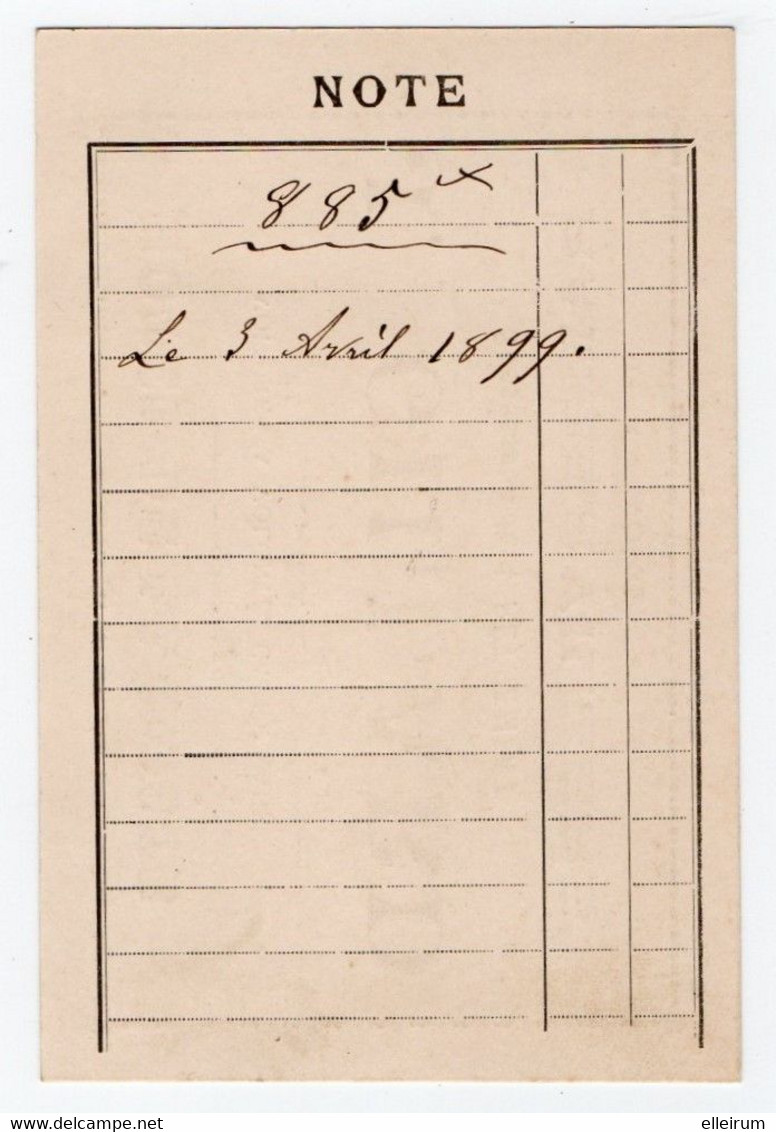 NOTE
885
Le 3 Avril 1899.
www.delcampe.net
elleirum